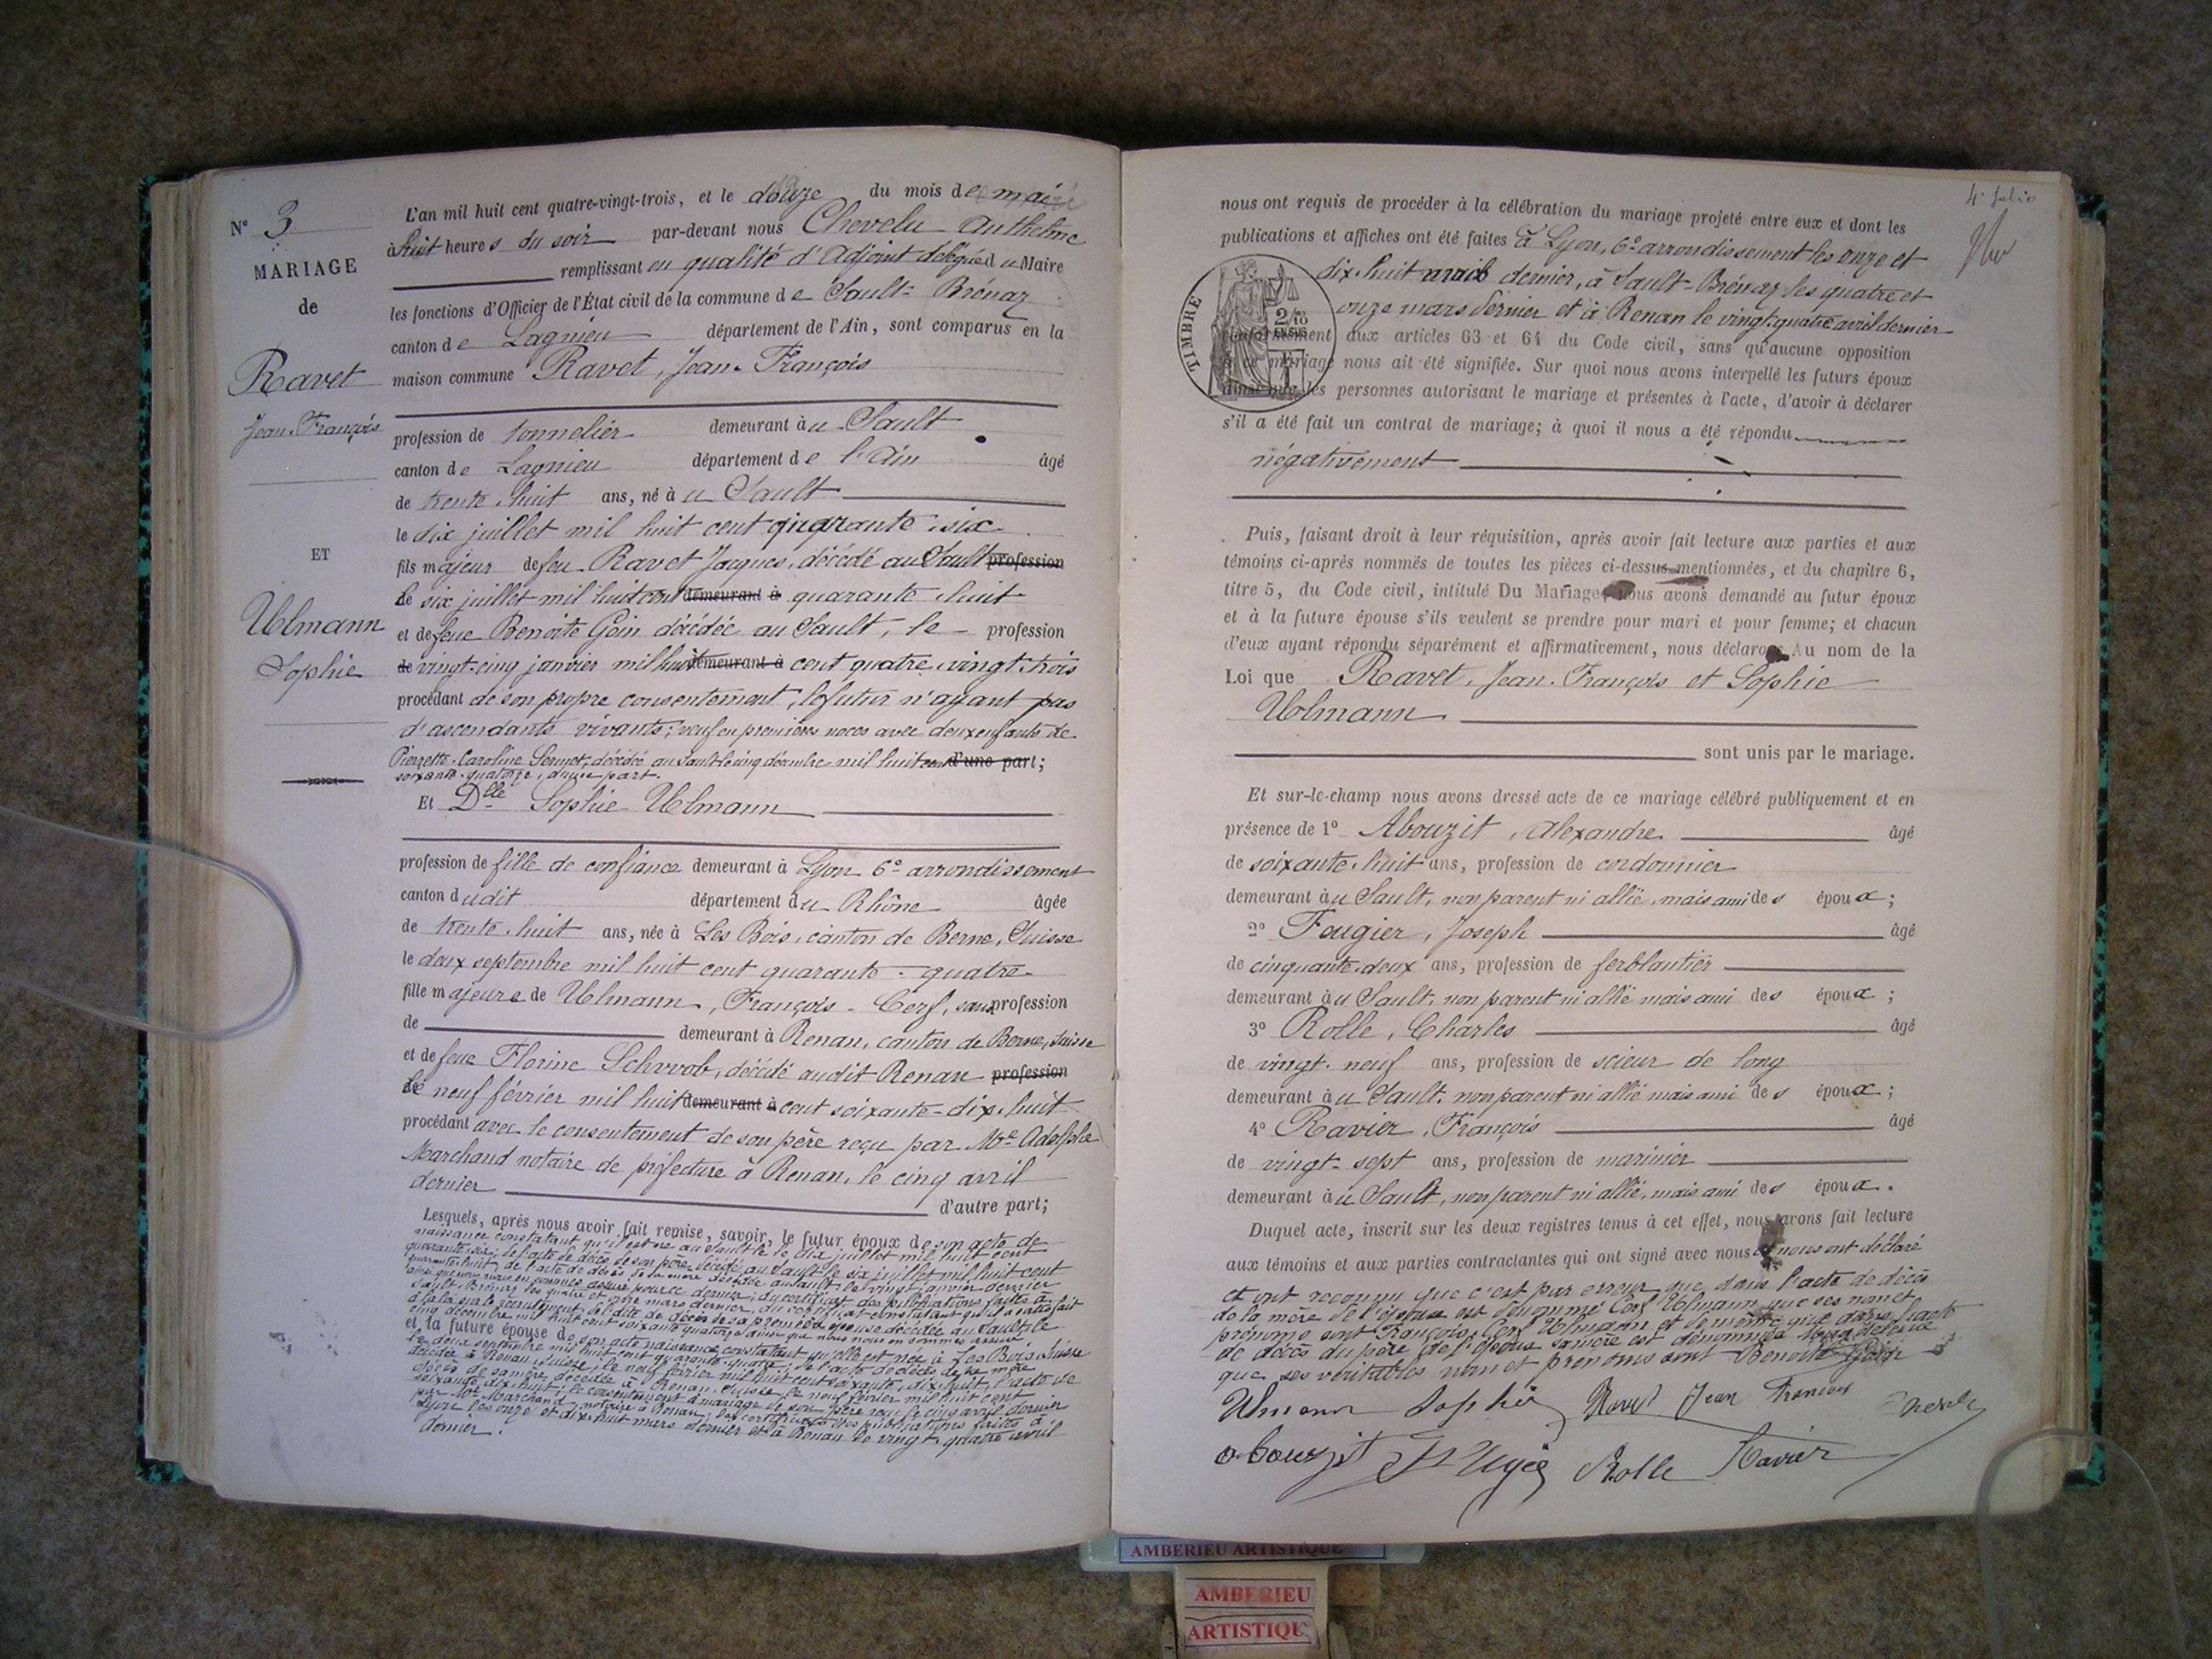 N° 3
MARIAGE
de
Ravet
Jean-François
ET
Ulmann
Sophie
L'an mil huit cent quatre-vingt-trois, et le douze du mois de mai
à huit heures du soir par-devant nous Chevelu Anthelme
remplissant en qualité d'Adjoint délégué du Maire
les fonctions d'Officier de l'État civil de la commune de Sault-Brénaz
canton de Lagnieu département de l'Ain, sont comparus en la
maison commune Ravet, Jean-François
profession de tonnelier demeurant à u Sault
canton de Lagnieu département de l'Ain âgé
de trente-huit ans, né à u Sault
le dix juillet mil huit cent quarante-six
fils majeur de feu Ravet Jacques, décédé au Sault profession
le six juillet mil huit cent demeurant à quarante-huit
et de feue Benoîte Goin décédée au Sault, le profession
de vingt-cinq janvier mil huit demeurant à cent quatre-vingt-trois
procédant de son propre consentement, le futur n'ayant pas
d'ascendants vivants; veuf en premières noces avec deux enfants de
Pierrette-Caroline décédée au Sault le cinq décembre mil huit cent d'une part;
soixante-quatorze, d'une part.
Et Dlle Sophie Ulmann
profession de fille de confiance demeurant à Lyon 6e arrondissement
canton dudit département du Rhône âgée
de trente-huit ans, née à Les Bois, canton de Berne, Suisse
le deux septembre mil huit cent quarante-quatre
fille majeure de Ulmann, François-Cerf, sans profession
de demeurant à Renan, canton de Berne, Suisse
et de feue Florine Schwob, décédé audit Renan profession
le neuf février mil huit demeurant à cent soixante-dix-huit
procédant avec le consentement de son père reçu par Me Adolphe
Marchand notaire de préfecture à Renan, le cinq avril
dernier d'autre part;
Lesquels, après nous avoir fait remise, savoir, le futur époux de son acte de
naissance constatant qu'il est né au Sault le dix juillet mil huit cent
quarante-six; de l'acte de décès de son père décédé au Sault le six juillet mil huit cent
quarante-huit, de l'acte de décès de sa mère décédée au Sault, le vingt janvier dernier
du certificat des publications faites à
Sault-Brénaz les quatre et onze mars dernier, du certificat constatant qu'il a satisfait
à la loi sur le recrutement, de l'acte de décès de sa première épouse décédée au Sault le
cinq décembre mil huit cent soixante-quatorze ainsi que nous nous en sommes assuré
et la future épouse de son acte naissance constatant qu'elle est née à Les Bois Suisse
le deux septembre mil huit cent quarante-quatre; de l'acte de décès de sa mère
décédée à Renan, Suisse, le neuf février mil huit cent soixante-dix-huit, l'acte de
décès de sa mère, décédée à Renan, Suisse le neuf février mil huit cent
soixante-dix-huit; le consentement à mariage de son père reçu le cinq avril dernier
par Me Marchand, notaire à Renan; les certificats des publications faites à
Lyon les onze et dix-huit mars dernier et à Renan le vingt-quatre avril
dernier.
4e folio
nous ont requis de procéder à la célébration du mariage projeté entre eux et dont les
publications et affiches ont été faites à Lyon, 6e arrondissement les onze et
dix-huit avril dernier, à Sault-Brénaz les quatre et
onze mars dernier et à Renan le vingt-quatre avril dernier
TIMBRE
2/10
EN SUS
conformément aux articles 63 et 64 du Code civil, sans qu'aucune opposition
à ce mariage nous ait été signifiée. Sur quoi nous avons interpellé les futurs époux
ainsi que les personnes autorisant le mariage et présentes à l'acte, d'avoir à déclarer
s'il a été fait un contrat de mariage; à quoi il nous a été répondu
négativement
Puis, faisant droit à leur réquisition, après avoir fait lecture aux parties et aux
témoins ci-après nommés de toutes les pièces ci-dessus mentionnées, et du chapitre 6,
titre 5, du Code civil, intitulé Du Mariage, nous avons demandé au futur époux
et à la future épouse s'ils veulent se prendre pour mari et pour femme; et chacun
d'eux ayant répondu séparément et affirmativement, nous déclarons Au nom de la
Loi que Ravet, Jean-François et Sophie
Ulmann
sont unis par le mariage.
Et sur-le-champ nous avons dressé acte de ce mariage célébré publiquement et en
présence de 1° Abouzit, Alexandre âgé
de soixante-huit ans, profession de cordonnier
demeurant à u Sault, non parent ni allié, mais ami des époux;
2° Fougier, Joseph âgé
de cinquante-deux ans, profession de ferblantier
demeurant à u Sault, non parent ni allié mais ami des époux;
3° Rolle, Charles âgé
de vingt-neuf ans, profession de scieur de long
demeurant à u Sault, non parent ni allié mais ami des époux;
4° Ravier, François âgé
de vingt-sept ans, profession de marinier
demeurant à u Sault, non parent ni allié, mais ami des époux.
Duquel acte, inscrit sur les deux registres tenus à cet effet, nous avons fait lecture
aux témoins et aux parties contractantes qui ont signé avec nous et nous ont déclaré
et ont reconnu que c'est par erreur que dans l'acte de décès
de la mère de l'épouse est dénommé Cerf Ulmann que ses nom et
prénoms sont François-Cerf Ulmann et de même que dans l'acte
de décès du père de l'époux sa mère est dénommée
que ses véritables nom et prénoms sont Benoîte Goin
Ulmann Sophie Ravet Jean François Chevelu
abouzit Rolle Ravier
AMBERIEU ARTISTIQUE
AMBERIEU
ARTISTIQUE